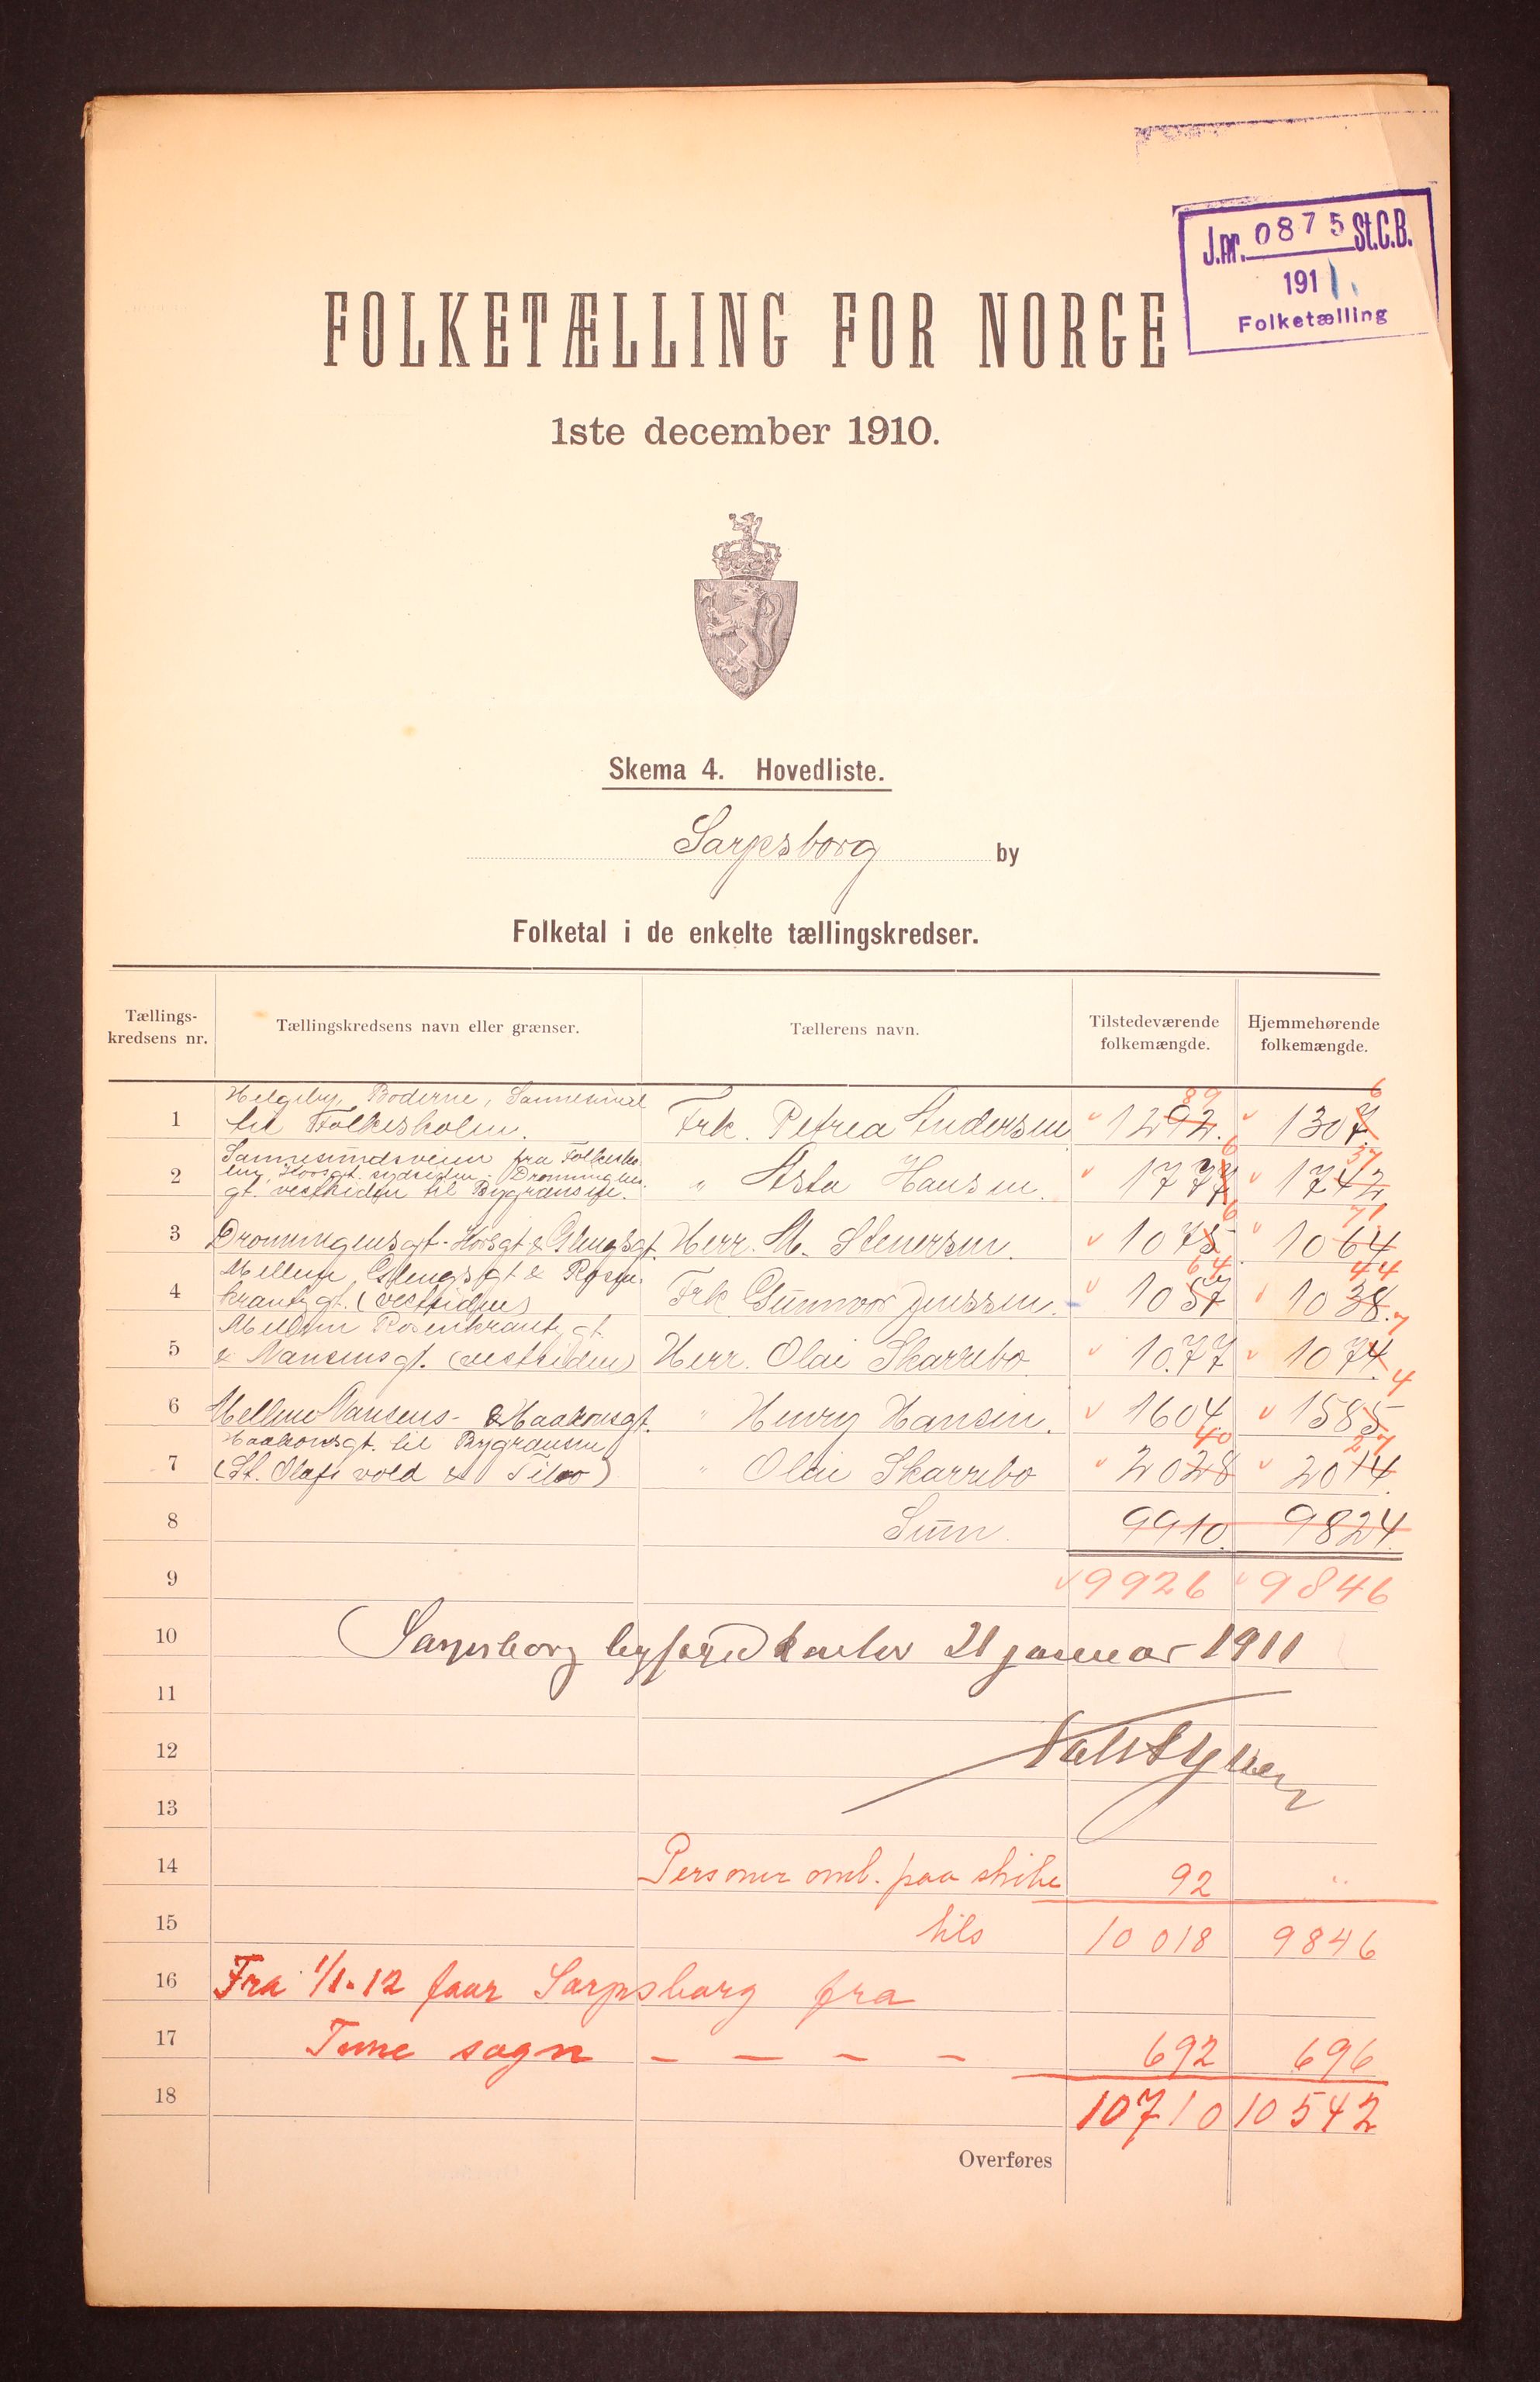 J.nr. 0875 St.C.B.
1911.
Folketælling
FOLKETÆLLING FOR NORGE
1ste december 1910.
Skema 4. Hovedliste.
Sarpsborg by
Folketal i de enkelte tællingskredser.
Tællings-
kredsens nr.
Tællingskredsens navn eller grænser.
Tællerens navn.
Tilstedeværende
folkemængde.
Hjemmehørende
folkemængde.
Helgeby, Boderne, Sannesund
89 6
1 til Folkesholm. Frk. Petrea Andersen 1292. 1307.
Sannesundsveien fra
Korsgt. sydsiden, Dronningens
6 37
2 gt. vestsiden til Bygrænsen. " Asta Hansen. 1777 1742
6 71
3 Dronningensgt-Korsgt & Glengsgt. Herr. M. Stenersen. 1075 1064
Mellem Glengsgt & Rosen
64 44
4 krantzgt. (vestsiden) Frk Gunnvor Jenssen. 1057 1038.
Mellem Rosenkrantzgt.
7
5 & Nansensgt. (vestsiden) Herr. Olai Skarrebo 1077 1074
4
6 Mellem Nansens- & Haakonsgt. " Henry Hansen. 1604 1585
Haakonsgt. til Bygrænsen
40 27
7 (St. Olafs vold & ) " Olai Skarrebo 2028 2014.
8 Sum. 9910. 9824.
9 9926 9846
10 Sarpsborg 21 januar 1911
11
12
13
14 Personer omb. paa skibe 92 "
15 tils 10 018 9846
16 Fra 1/1-12 faar Sarpsborg fra
17 Tune sogn – – – – 692 696
18 10710 10542
Overføres